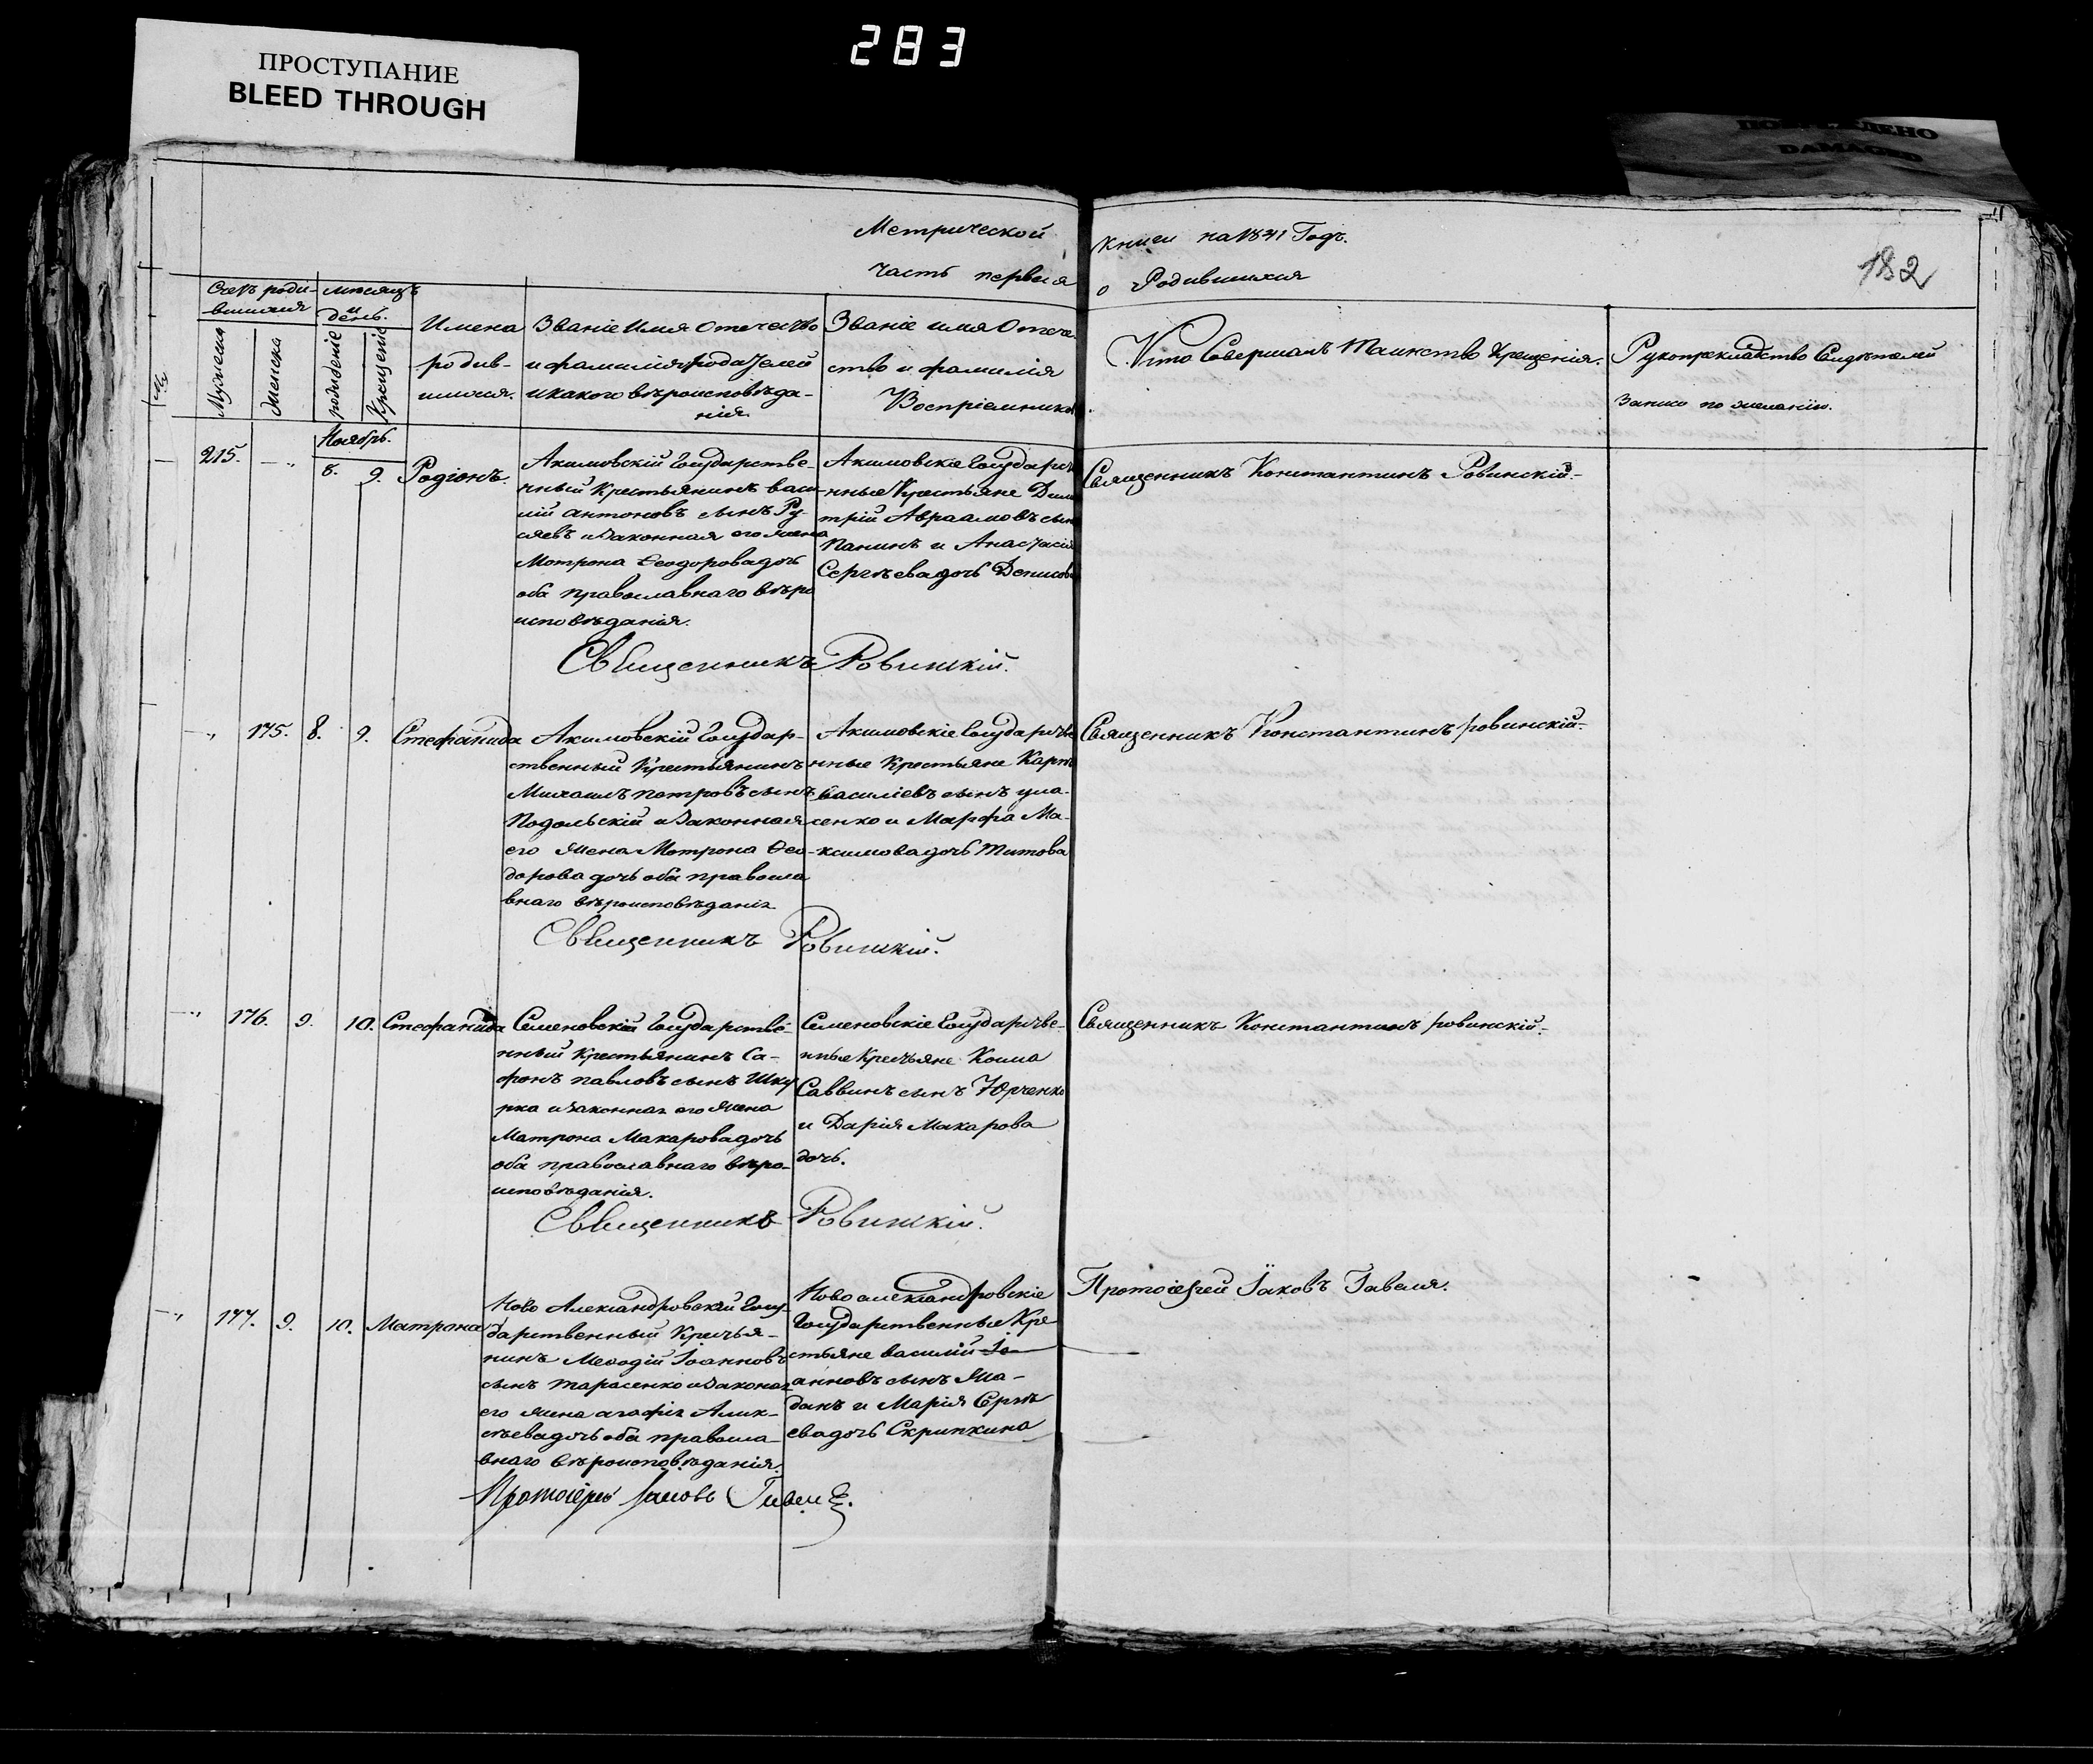 283
ПРОСТУПАНИЕ
BLEED THROUGH
DAMAGED
Метрической книги на 1841 Годъ.
часть первая о Родившихся
182
Счетъ роди-
вшихся
Мужеска
Женска
месяцъ
и
день.
рожденіе
Крещеніе
Имена
родив-
шихся.
Званіе Имя Отечество
и фамилія родителей
и какого вѣроисповѣда-
нія.
Званіе имя Отече
ство и фамилія
Воспріемниковъ
Кто Совершалъ Таинство Крещенія.
Рукоприкладство Свидѣтелей
записи по желанію.
Ноябрь.
215.
8.
9.
Родіонъ.
Акимовскій Государстве-
нный Крестьянинъ Васи-
лій Антоновъ сынъ Ру-
сяевъ и Законная его жена
Мотрона Ѳеодорова дочь
оба православнаго вѣро
исповѣданія.
Акимовскіе Государст
нные Крестьяне Дими
трій Авраамовъ сынъ
Панинъ и Анастасія
Сергѣева дочь Денисова
Священникъ Константинъ Ровинскій.-
Священникъ Ровинскій.
175.
8.
9.
Стефанида
Акимовскій Государ-
ственный Крестьянинъ
Михаилъ Петровъ сынъ
Подольскій и Законная
его Жена Мотрона Ѳео-
дорова дочь оба правосла
внаго вѣроисповѣданія
Акимовскіе Государстве
нные Крестьяне Карпъ
Василіевъ сынъ
и Марфа Ма-
ксимова дочь Титова
Священникъ Константинъ Ровинскій.-
Священникъ Ровинскій.
176.
9.
10.
Стефанида
Семеновскій Государстве-
нный Крестьянинъ Са-
фонъ Павловъ сынъ Шку
рка и законная его Жена
Матрона Макарова дочь
оба православнаго вѣро-
исповѣданія.
Семеновскіе Государстве-
нные Крестьяне Косма
Саввинъ сынъ Юрченко
и Дарія Макарова
дочь.
Священникъ Константинъ Ровинскій.-
Священникъ Ровинскій.
177.
9.
10.
Матрона
Ново Александровскій Госу-
дарственный Крестья-
нинъ Меѳодій Іоанновъ
сынъ Тарасенко и Законая
его жена Агафія Алек-
сѣева дочь оба правосла
внаго вѣроисповѣданія.
Ново александровскіе
Государственные Кре
стьяне Василій Іо
анновъ сынъ Жа-
данъ и Марія Сергѣ
ева дочь Скрипкина
Протоіерей Іаковъ Гавеля.
Протоіерей Іаковъ